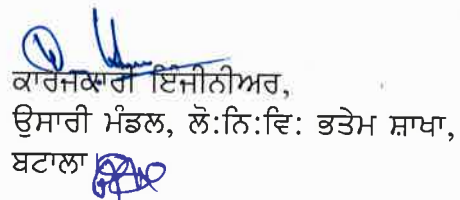 ਕਾਰਜਕਾਰੀ ਇੰਜੀਨੀਅਰ,
ਉਸਾਰੀ ਮੰਡਲ, ਲੋ:ਨਿ:ਵਿ: ਭਤੇਮ ਸ਼ਾਖਾ,
ਬਟਾਲਾ